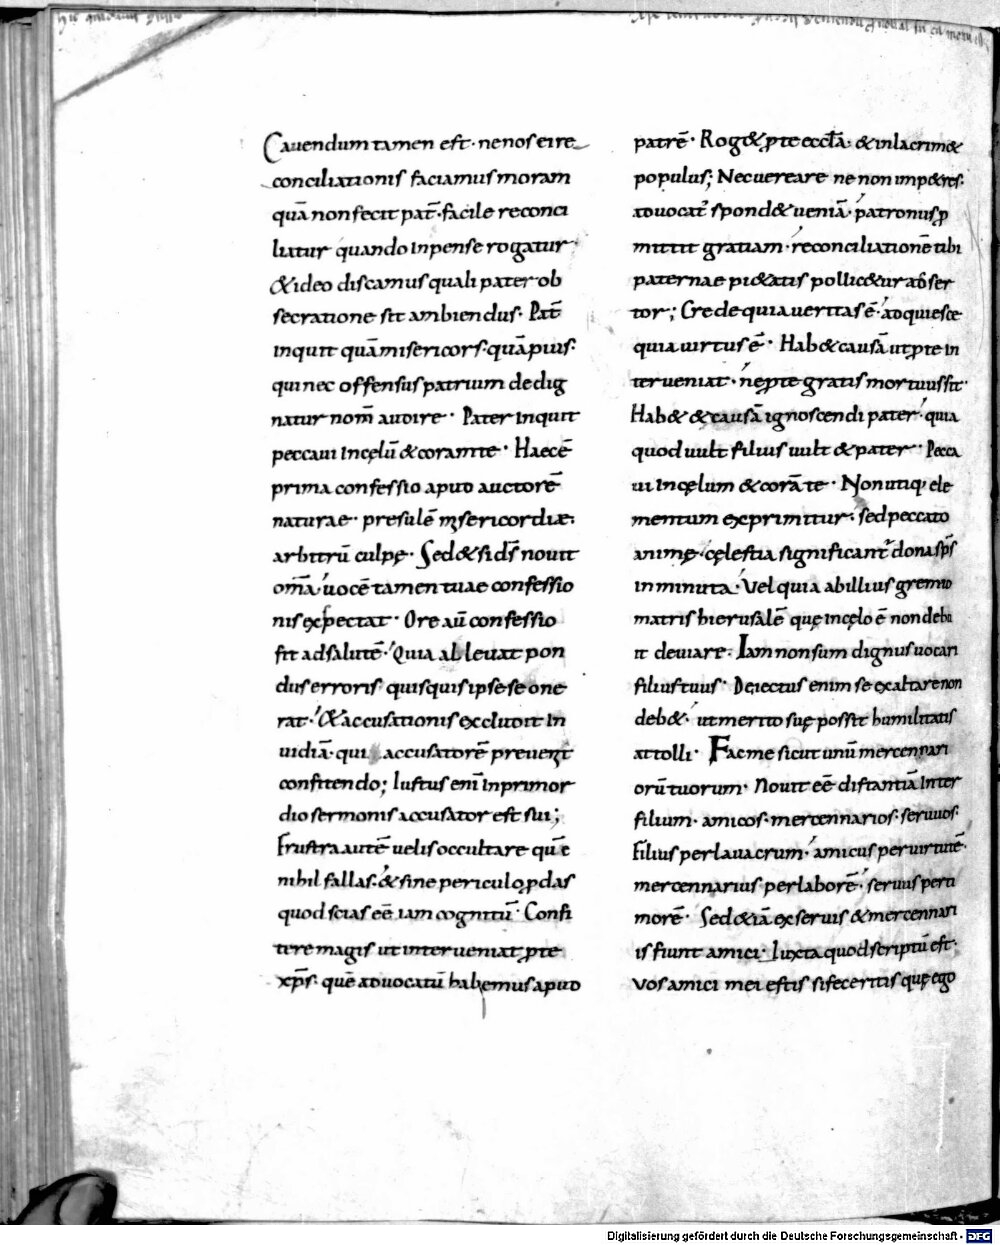 Cauendum tamen est· ne nos ei re
conciliationis faciamus moram
quā non fecit pat̄· facile reconci
liatur quando inpense rogatur·
& ideo discamus quali pater ob
secratione sit ambiendus· Pat̄
inquit quā misericors· quā pius·
qui nec offensus patrium dedig
natur nom̄ audire· Pater inquit
peccaui in cęlū & coram te· Haec ē
prima confessio apud auctorē
naturae· presulē misericordiæ·
arbitrū culpę· Sed & si d̄s nouit
om̄a· uocē tamen tuae confessio
nis expectat· Ore aū confessio
fit ad salutē· Quia alleuat pon
dus erroris quisquis ipse se one
rat· & accusationis excludit in
uidiā· qui accusatorē preuenit
confitendo; Iustus eni in primor
dio sermonis accusator est sui;
Frustra autē uelis occultare quē
nihil fallas· & sine periculo ꝓdas
quod scias eē iam cognitū· Confi
tere magis ut interueniat ꝓ te
xp̄s· quē aduocatū habemus apud
patrē· Rog& ꝓ te eccl̄a· & inlacrim&
populus; Nec uereare ne non imp&res·
aduocat᷑ spond& ueniā· patronus ꝓ
mittit gratiam· reconciliationē tibi
paternae pi&atis pollic&ur adser
tor; Crede quia ueritas ē· adquiesce
quia uirtus ē· Hab& causā ut ꝓ te in
terueniat· ne ꝓ te gratis mortuus sit·
Hab& & causā ignoscendi pater· quia
quod uult filius uult & pater· Pecca
ui in cęlum & corā te· Non utiq; ele
mentum exprimitur· sed peccato
animę· cęlestia significant᷑ dona sp̄s
inminuta· Vel quia ab illius gremio
matris hierusalē quę in cęlo ē non debu
it deuiare· Iam non sum dignus uocari
filius tuus· Deiectus enim se exaltare non
deb&· ut merito suę possit humilitatis
attolli· Fac me sicut unū mercennari
orū tuorum· Nouit eē distantiā inter
filium· amicos· mercennarios· seruuos·
Filius per lauacrum· amicus per uirtutē·
mercennarius per laborē· seruus per ti
morē· Sed & iā ex seruis & mercennari
is fiunt amici· Iuxta quod scriptū est·
Vos amici mei estis si feceritis quę ego
Digitalisierung gefördert durch die Deutsche Forschungsgemeinschaft - DFG